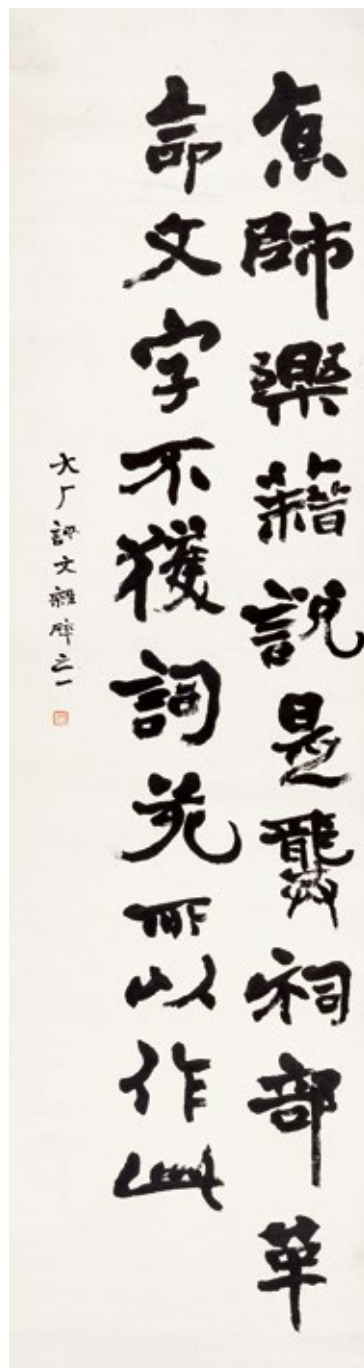 京師樂籍說是龔祠部革
命文字不獲詞苑所以作此
大厂評文雜碎之一